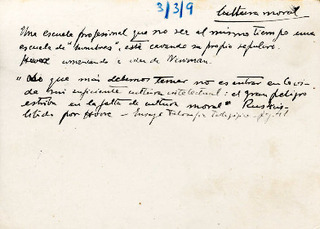 3/3/9
Cultura moral
Una escuela profesional que no sea al mismo tiempo una
escuela de "hombres", está cavando su propio sepulcro.
Hovre comentando a idea de Newman.
"Lo que más debemos temer no es entrar en la vi-
da sin suficiente cultura intelectual: el gran peligro
estriba en la falta de cultura moral" Ruskin -
citado por Hovre — Ensayo Filosofía Pedagógica -